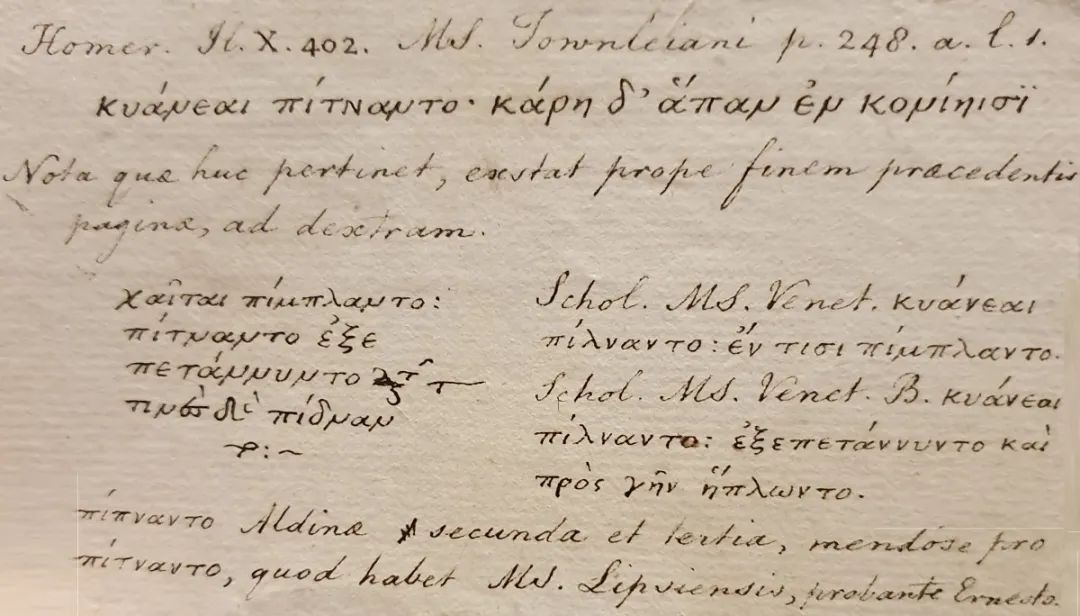 Homer. Il. X. 402. MS. Townleiani p. 248. a. l. 1.
κυάνεαι πίτναντο· κάρη δ' ἅπαν ἐν κονίηισϊ
Nota quæ huc pertinet, exstat prope finem præcedentis
paginæ, ad dextram.
χαῖται πίμπλαντο:
πίτναντο ἐξε
πετάννυντο
δὲ πίδναν
Schol. MS. Venet. κυάνεαι
πίλναντο: ἔν τισι πίμπλαντο.
Schol. MS. Venet. B. κυάνεαι
πίλναντο: ἐξεπετάννυντο καὶ
πρὸς γῆν ἥπλωντο.
πίπναντο Aldinæ secunda et tertia, mendose pro
πίτναντο, quod habet MS. Lipsiensis, probante Ernesto.